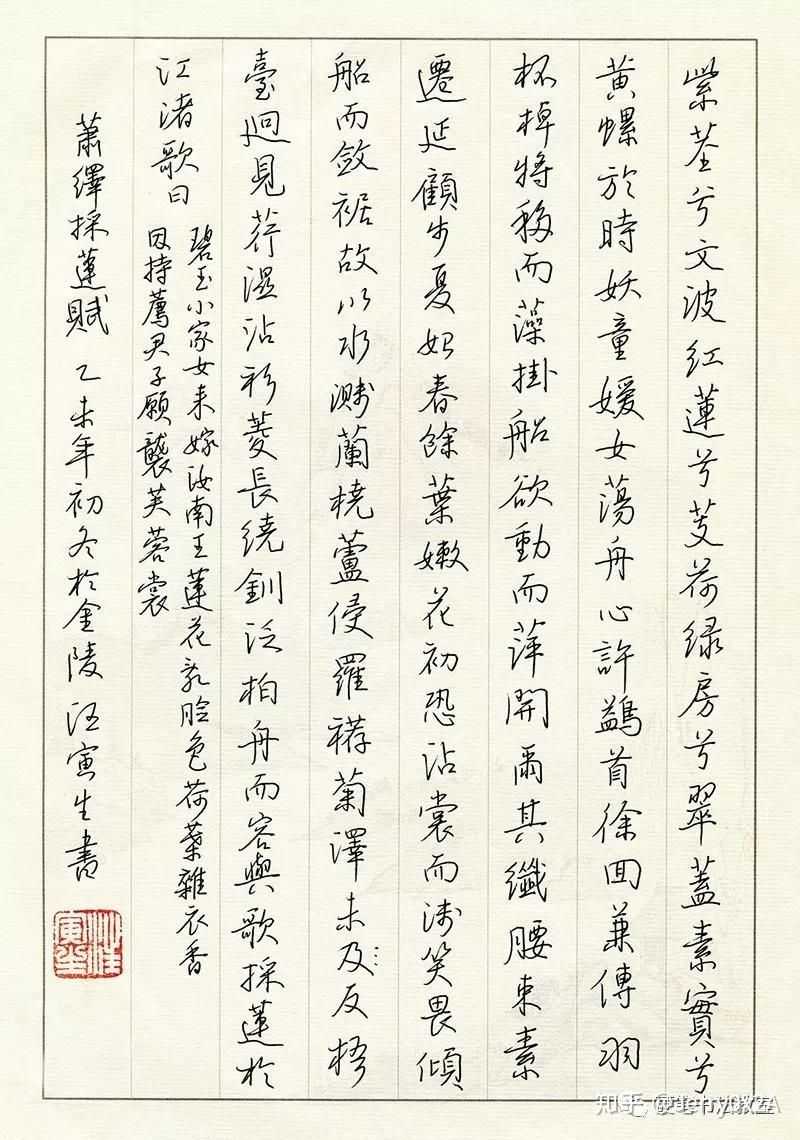 紫茎兮文波紅蓮兮芰荷绿房兮翠蓋素實兮
黄螺於時妖童媛女蕩舟心許鷁首徐回兼傳羽
杯棹將移而藻掛船欲動而萍開爾其纖腰束素
遷延顧步夏始春餘葉嫩花初恐沾裳而淺笑畏傾
船而斂裾故以水濺蘭橈蘆侵羅菊澤未及反梧
臺迥見荇濕沾衫菱長繞釧泛柏舟而容與歌採蓮於
江渚歌曰
碧玉小家女来嫁汝南王蓮花亂臉色荷葉雜衣香
因持薦君子願襲芙蓉裳
蕭繹採蓮賦 乙未年初冬於金陵汪寅生書
汪寅生
知乎